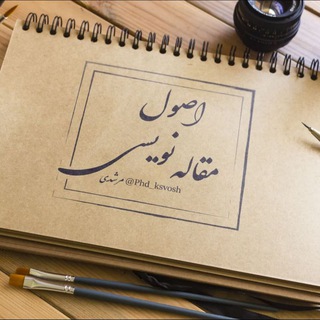 اصول
مقاله نویسی
@Phd_ksvosh مرشدی